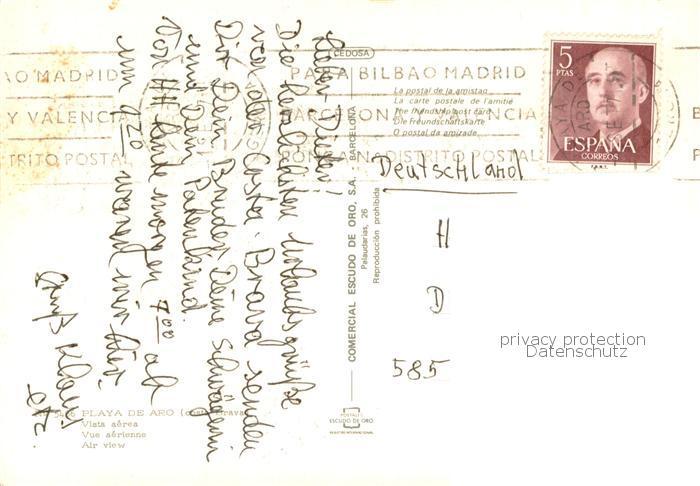 Lieber Dieter!
Die herzlichsten Urlaubsgrüße
von der Costa-Brava senden
Dir Dein Bruder, Deine Schwägerin
und Dein Patenkind.
Von HH Ende morgen 4⁰⁰ ab
um 1720 waren wir hier.
Gruß Klaus
etc.
PLAYA DE ARO (Costa Brava)
Vista aérea
Vue aérienne
Air view
CEDOSA
COMERCIAL ESCUDO DE ORO, S.A. - BARCELONA
Palaudarias, 26
Reproducción prohibida
La postal de la amistad
La carte postale de l'amitié
The friendship post card
Die Freundschaftskarte
O postal da amizade
PARA BILBAO MADRID
BARCELONA Y VALENCIA
PONGAN DISTRITO POSTAL
AO MADRID
Y VALENCIA
TRITO POSTAL
5
PTAS
ESPAÑA
CORREOS
F.N.M.T.
Deutschland
H
D
585
privacy protection
Datenschutz
POSTALES
ESCUDO DE ORO